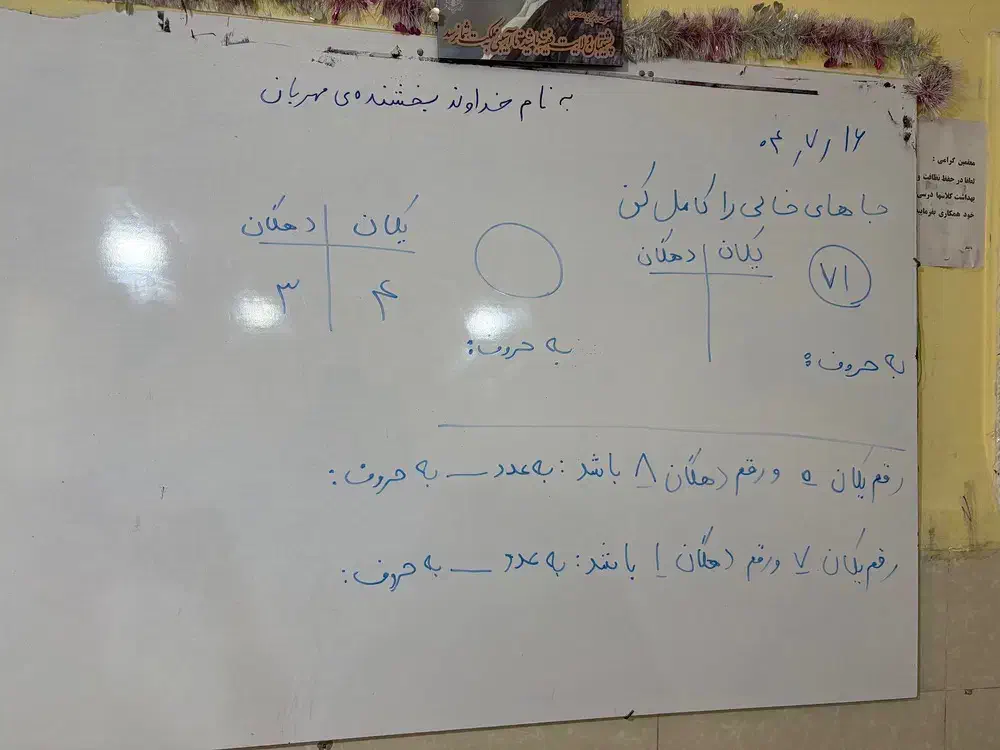 به نام خداوند بخشنده‌ی مهربان
۰۴/۷/۱۶
معلمین گرامی :
لطفا در حفظ نظافت و
بهداشت کلاسها درسی
خود همکاری بفرمایید
جا های خالی را کامل کن
۷۱
یکان دهگان
به حروف:
یکان دهگان
۴ ۳
به حروف:
رقم یکان ۵ و رقم دهگان ۸ باشد : به عدد __ به حروف :
رقم یکان ۷ و رقم دهگان ۱ باشد : به عدد __ به حروف :